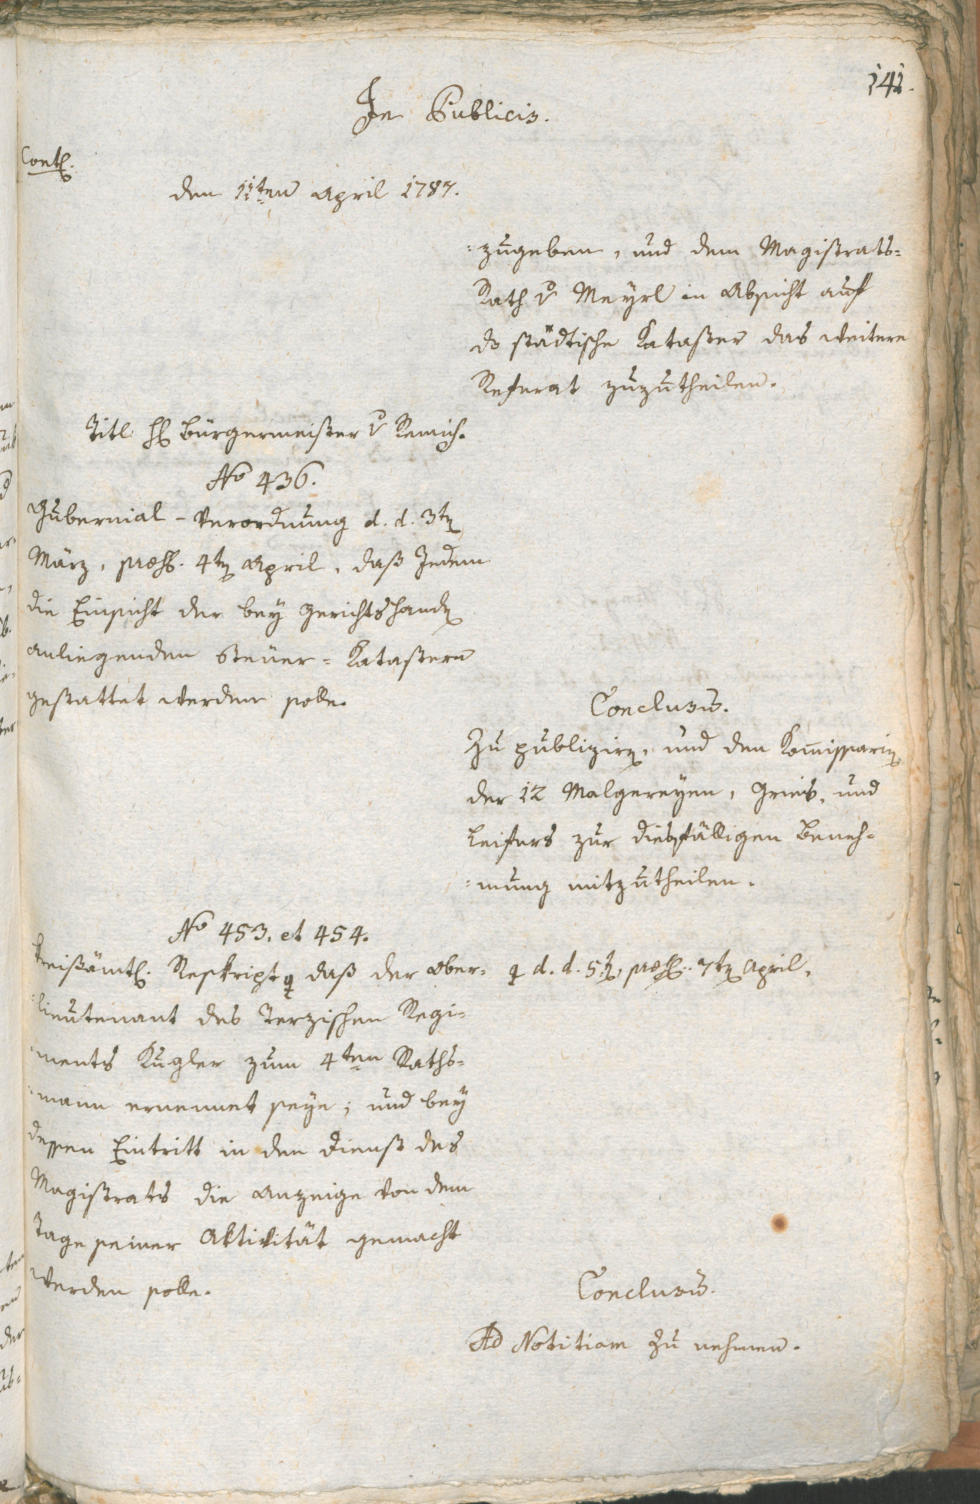 141.
In Publicis.
Cont.
den 11ten April 1787.
=zugeben, und dem Magistrats=
Rath v Meyrl in Absicht auf
do städtische Kataster das weitere
Referat zuzutheilen.
Titl. H Bürgermeister v Remich.
No 436.
Gubernial-Verordnung d. d. 3tn
März, præs. 4tn April, daß Jedem
die Einsicht der bey Gerichtshandn
anliegenden Steuer=Katastern
gestattet werden solle.
Conclusu.
Zu publizirn, und den Komissarin
der 12 Malgereyen, Gries, und
Leifers zur diesfälligen Beneh=
=mung mitzutheilen.
No 453. et 454.
Kreisämtl. Reskript daß der Ober=
d. d. 5tn, præs. 7tn April,
=lieutenant des Terzischen Regi=
=ments Kugler zum 4ten Raths=
=mann ernennet seye; und bey
dessen Eintritt in den Dienst des
Magistrats die Anzeige von dem
Tage seiner Aktivität gemacht
werden solle.
Conclusu.
Ad Notitiam zu nehmen.